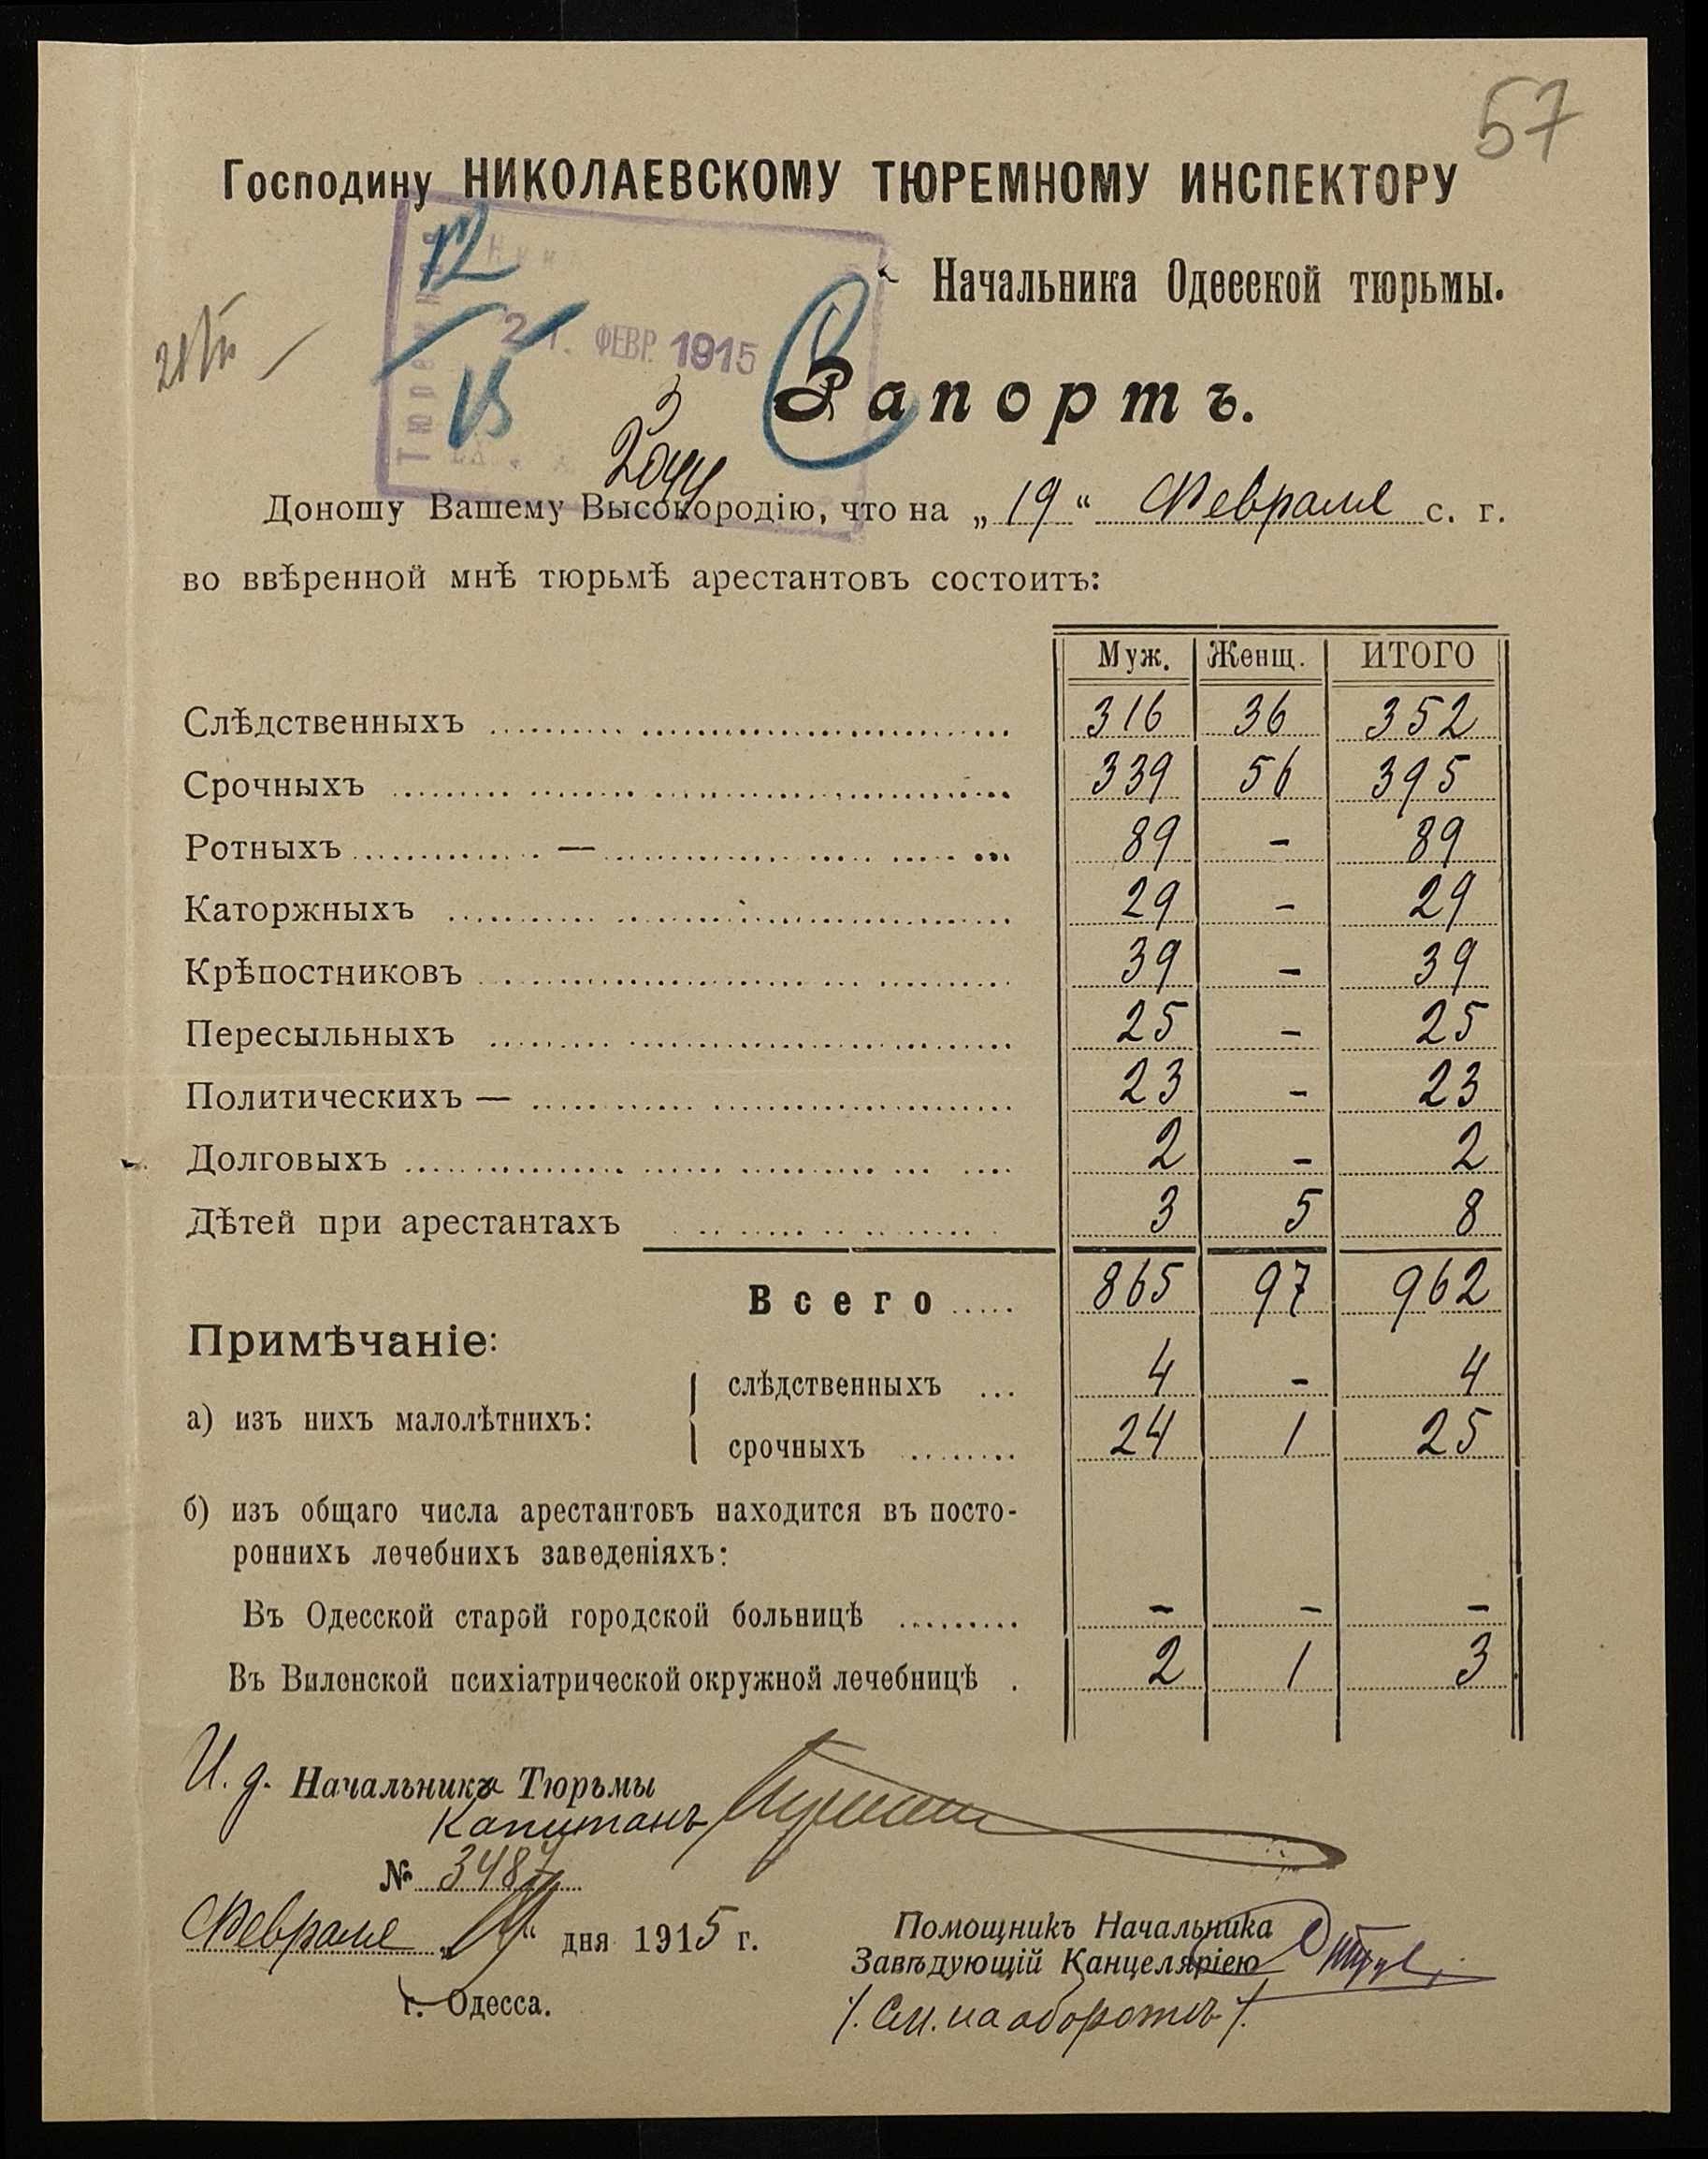 57
Господину НИКОЛАЕВСКОМУ ТЮРЕМНОМУ ИНСПЕКТОРУ
Начальника Одесской тюрьмы.
12
21. ФЕВР. 1915
15
Рапортъ.
3
Доношу Вашему Высокородію, что на „19“ Февраля с. г.
во ввѣренной мнѣ тюрьмѣ арестантовъ состоитъ:
Муж. Женщ. ИТОГО
Слѣдственныхъ 316 36 352
Срочныхъ 339 56 395
Ротныхъ — 89 - 89
Каторжныхъ 29 - 29
Крѣпостниковъ 39 - 39
Пересыльныхъ 25 - 25
Политическихъ — 23 - 23
Долговыхъ 2 - 2
Дѣтей при арестантахъ 3 5 8
Всего 865 97 962
Примѣчаніе:
а) изъ нихъ малолѣтнихъ:
слѣдственныхъ 4 - 4
срочныхъ 24 1 25
б) изъ общаго числа арестантовъ находится въ посто-
роннихъ лечебнихъ заведеніяхъ:
Въ Одесской старой городской больницѣ - - -
Въ Виленской психіатрической окружной лечебницѣ 2 1 3
И. д. Начальника Тюрьмы
Капитанъ
№ 3487
Февраля „19“ дня 1915 г.
г. Одесса.
Помощникъ Начальника
Завѣдующій Канцеляріею
/. См. на оборотѣ /.